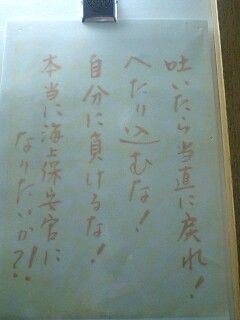 吐いたら当直に戻れ!
へたり込むな!
自分に負けるな!
本当に海上保安官に
なりたいか?!